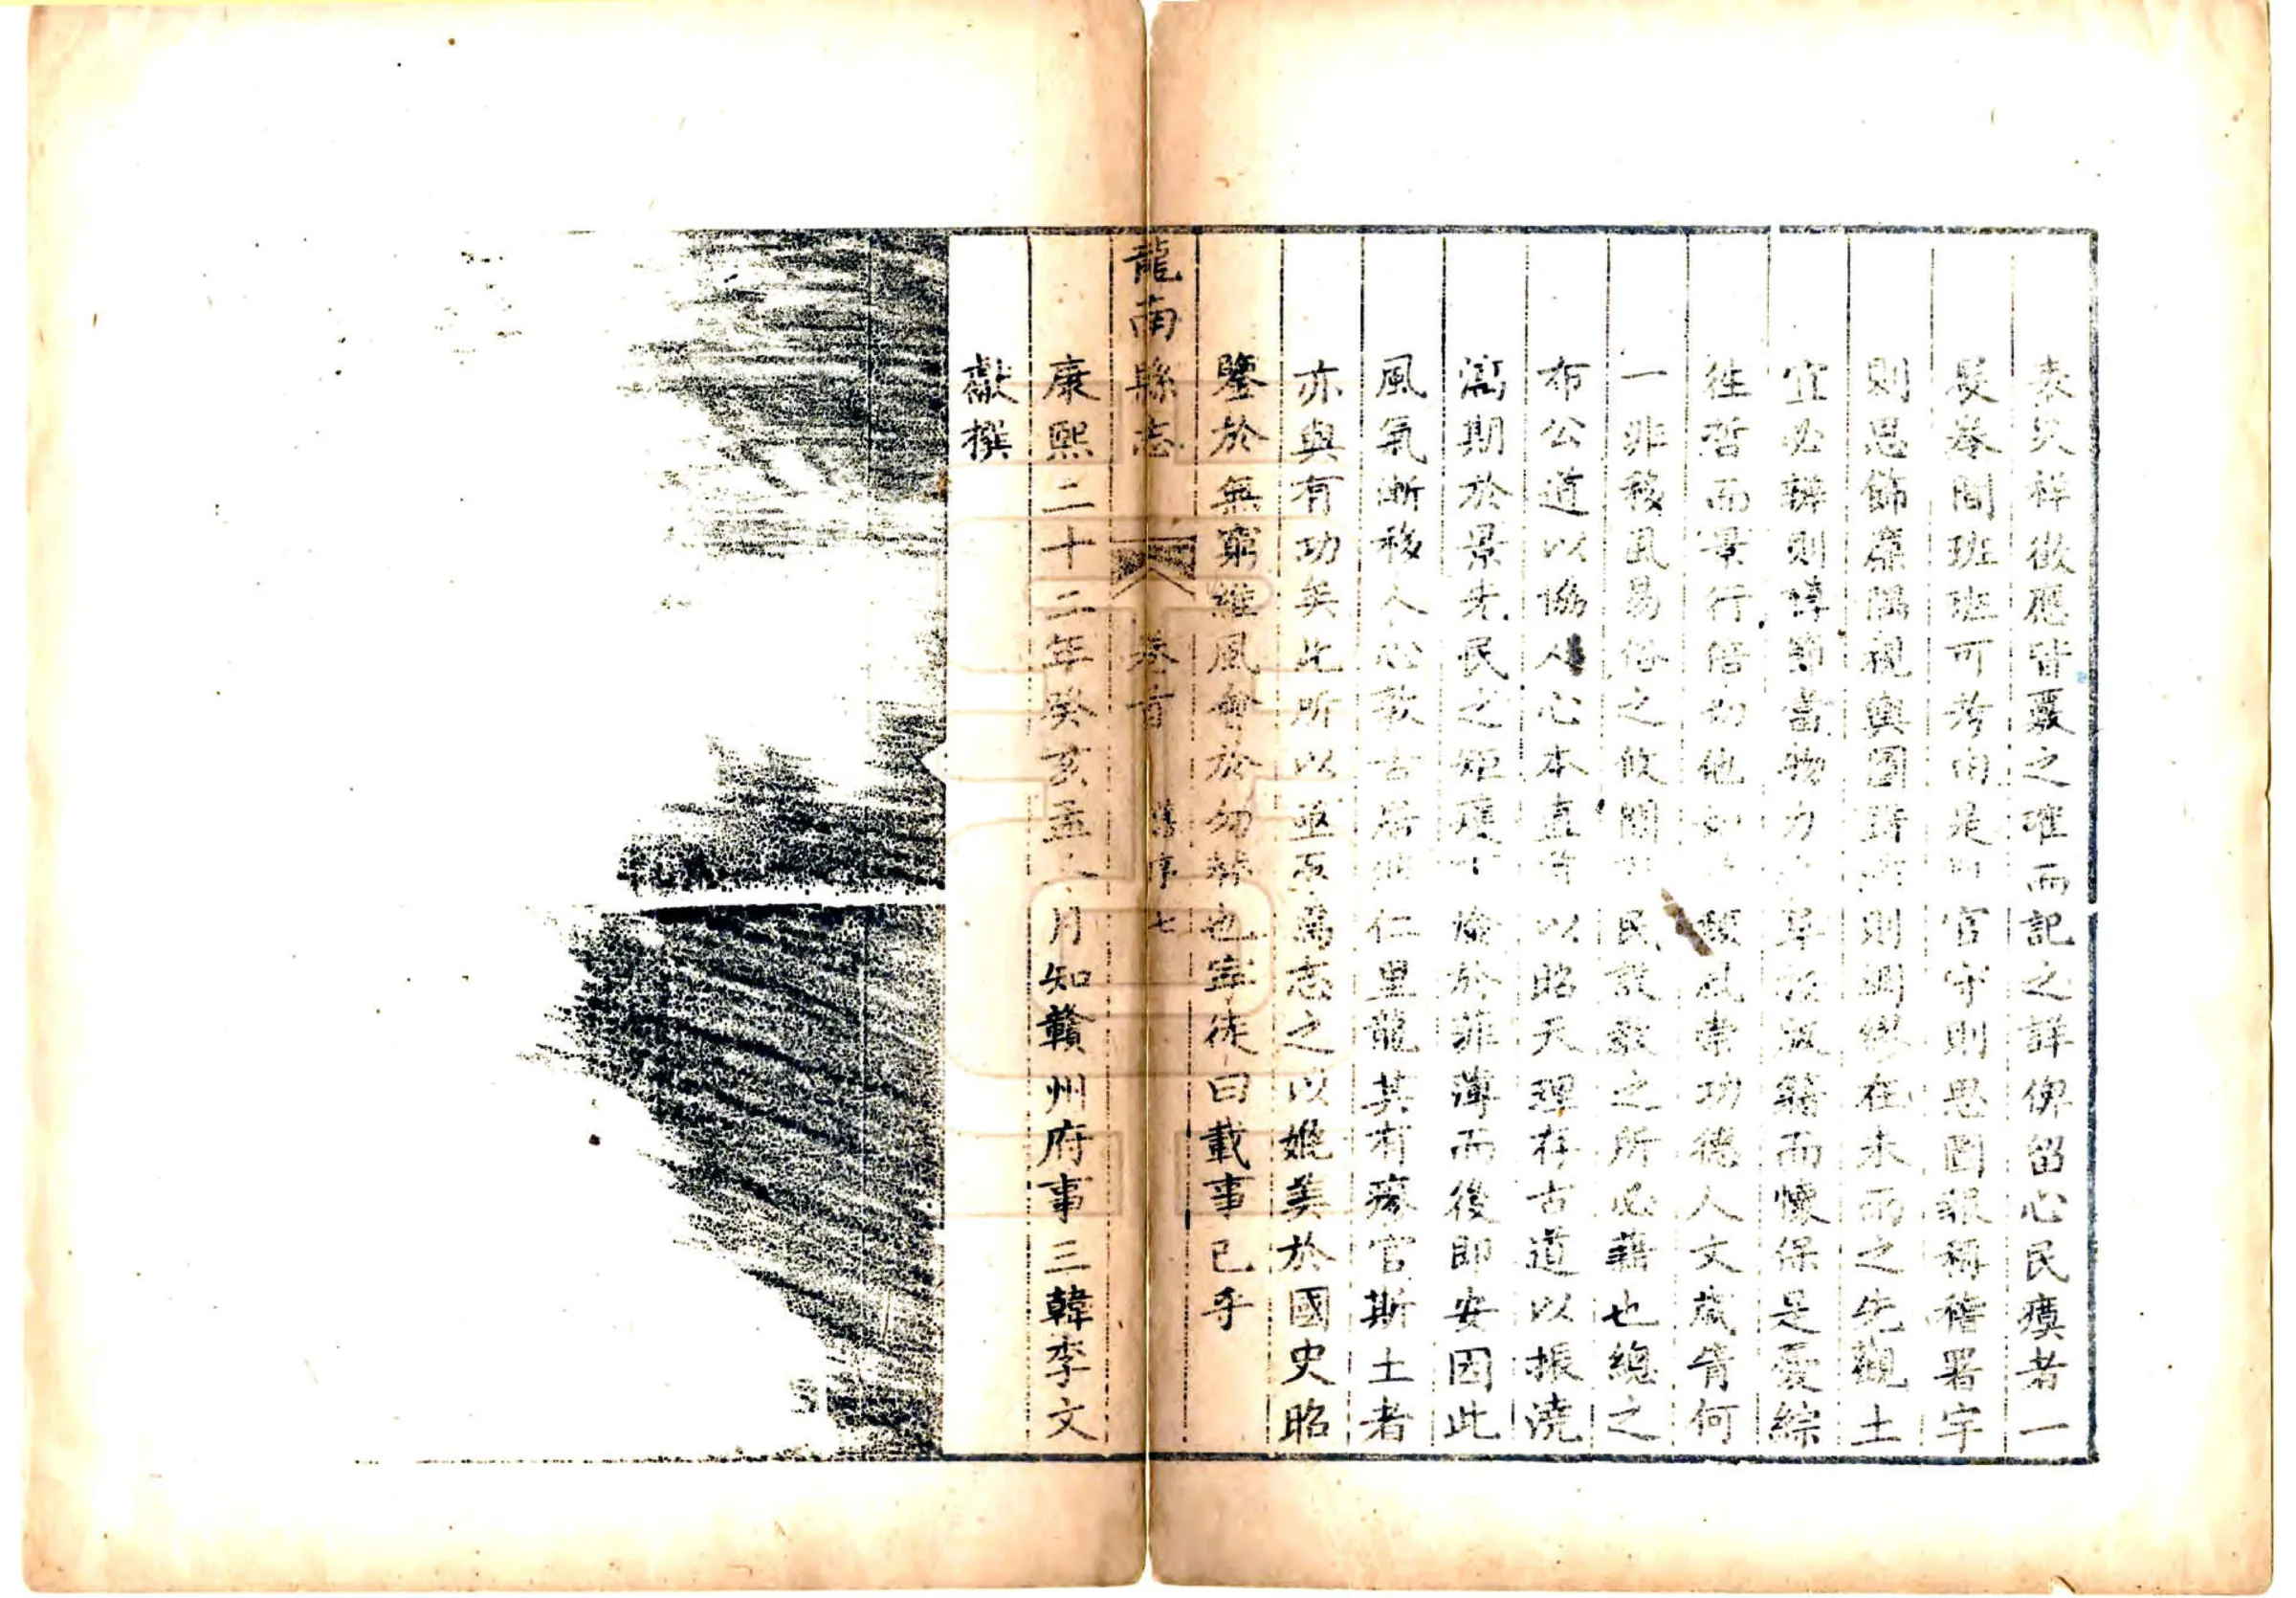 表災祥徵應皆覈之確而記之詳俾留心民瘼者一
展卷間班班可考由是官守則思圖報稱稽署宇
則思飾廉隅視輿圖野則綢繆在未雨之先觀土
宜必辨則撙節嗇物力版籍而懷保是憂綜
往哲而景行倍切他如風崇功德人文歲時何
一非移風易俗之攸關民設教之所必藉也總之
布公道以協人心本直以昭天理存古道以振澆
漓期於景先民之矩於菲薄而後即安因此
風氣漸移人心敦古居仁里龍其有瘳官斯土者
亦與有功矣此所以亟亟焉志之以媲美於國史昭
鑒於無窮維風會於勿替也寧徒曰載事已乎
龍南縣志 卷首 舊序 七
康熙二十二年癸亥孟月知贛州府事三韓李文
獻撰